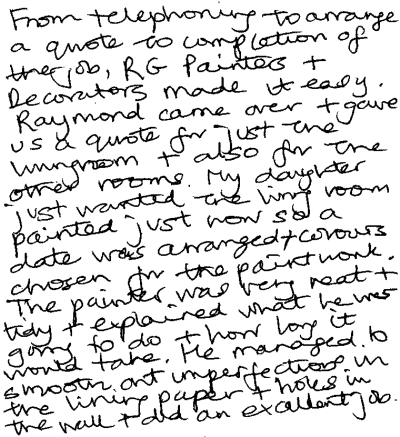 From telephoning to arrange
a quote to completion of
the job, RG Painters +
Decorators made it easy.
Raymond came over + gave
us a quote for just the
livingroom + also for the
other rooms. My daughter
just wanted the living room
painted just now so a
date was arranged + colours
chosen for the paintwork.
The painter was very neat +
tidy + explained what he was
going to do + how long it
would take. He managed to
smooth out imperfections in
the lining paper + holes in
the wall + did an excellent job.